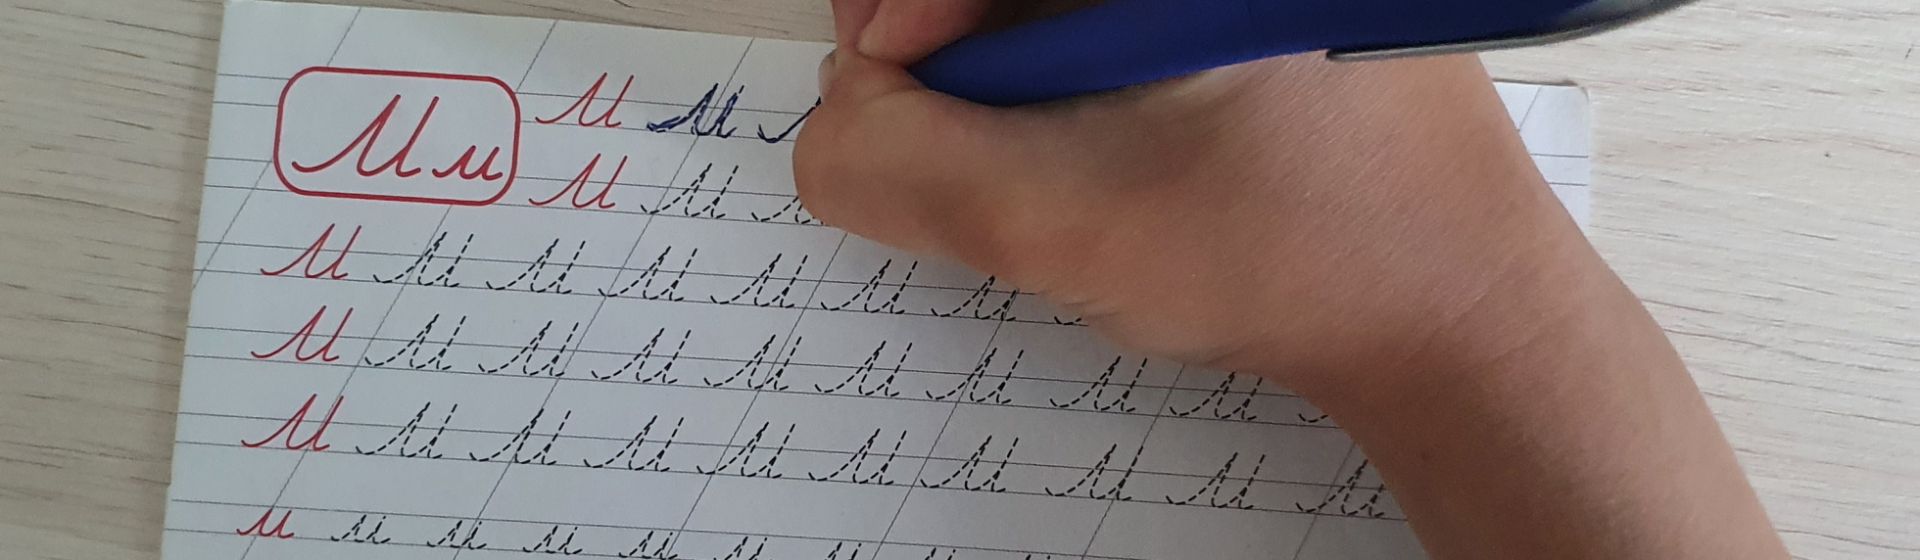 М м
М М
М М М
М М М М М М М
М М М М М М М М М
М М М М М М М М М М
м м м м м м